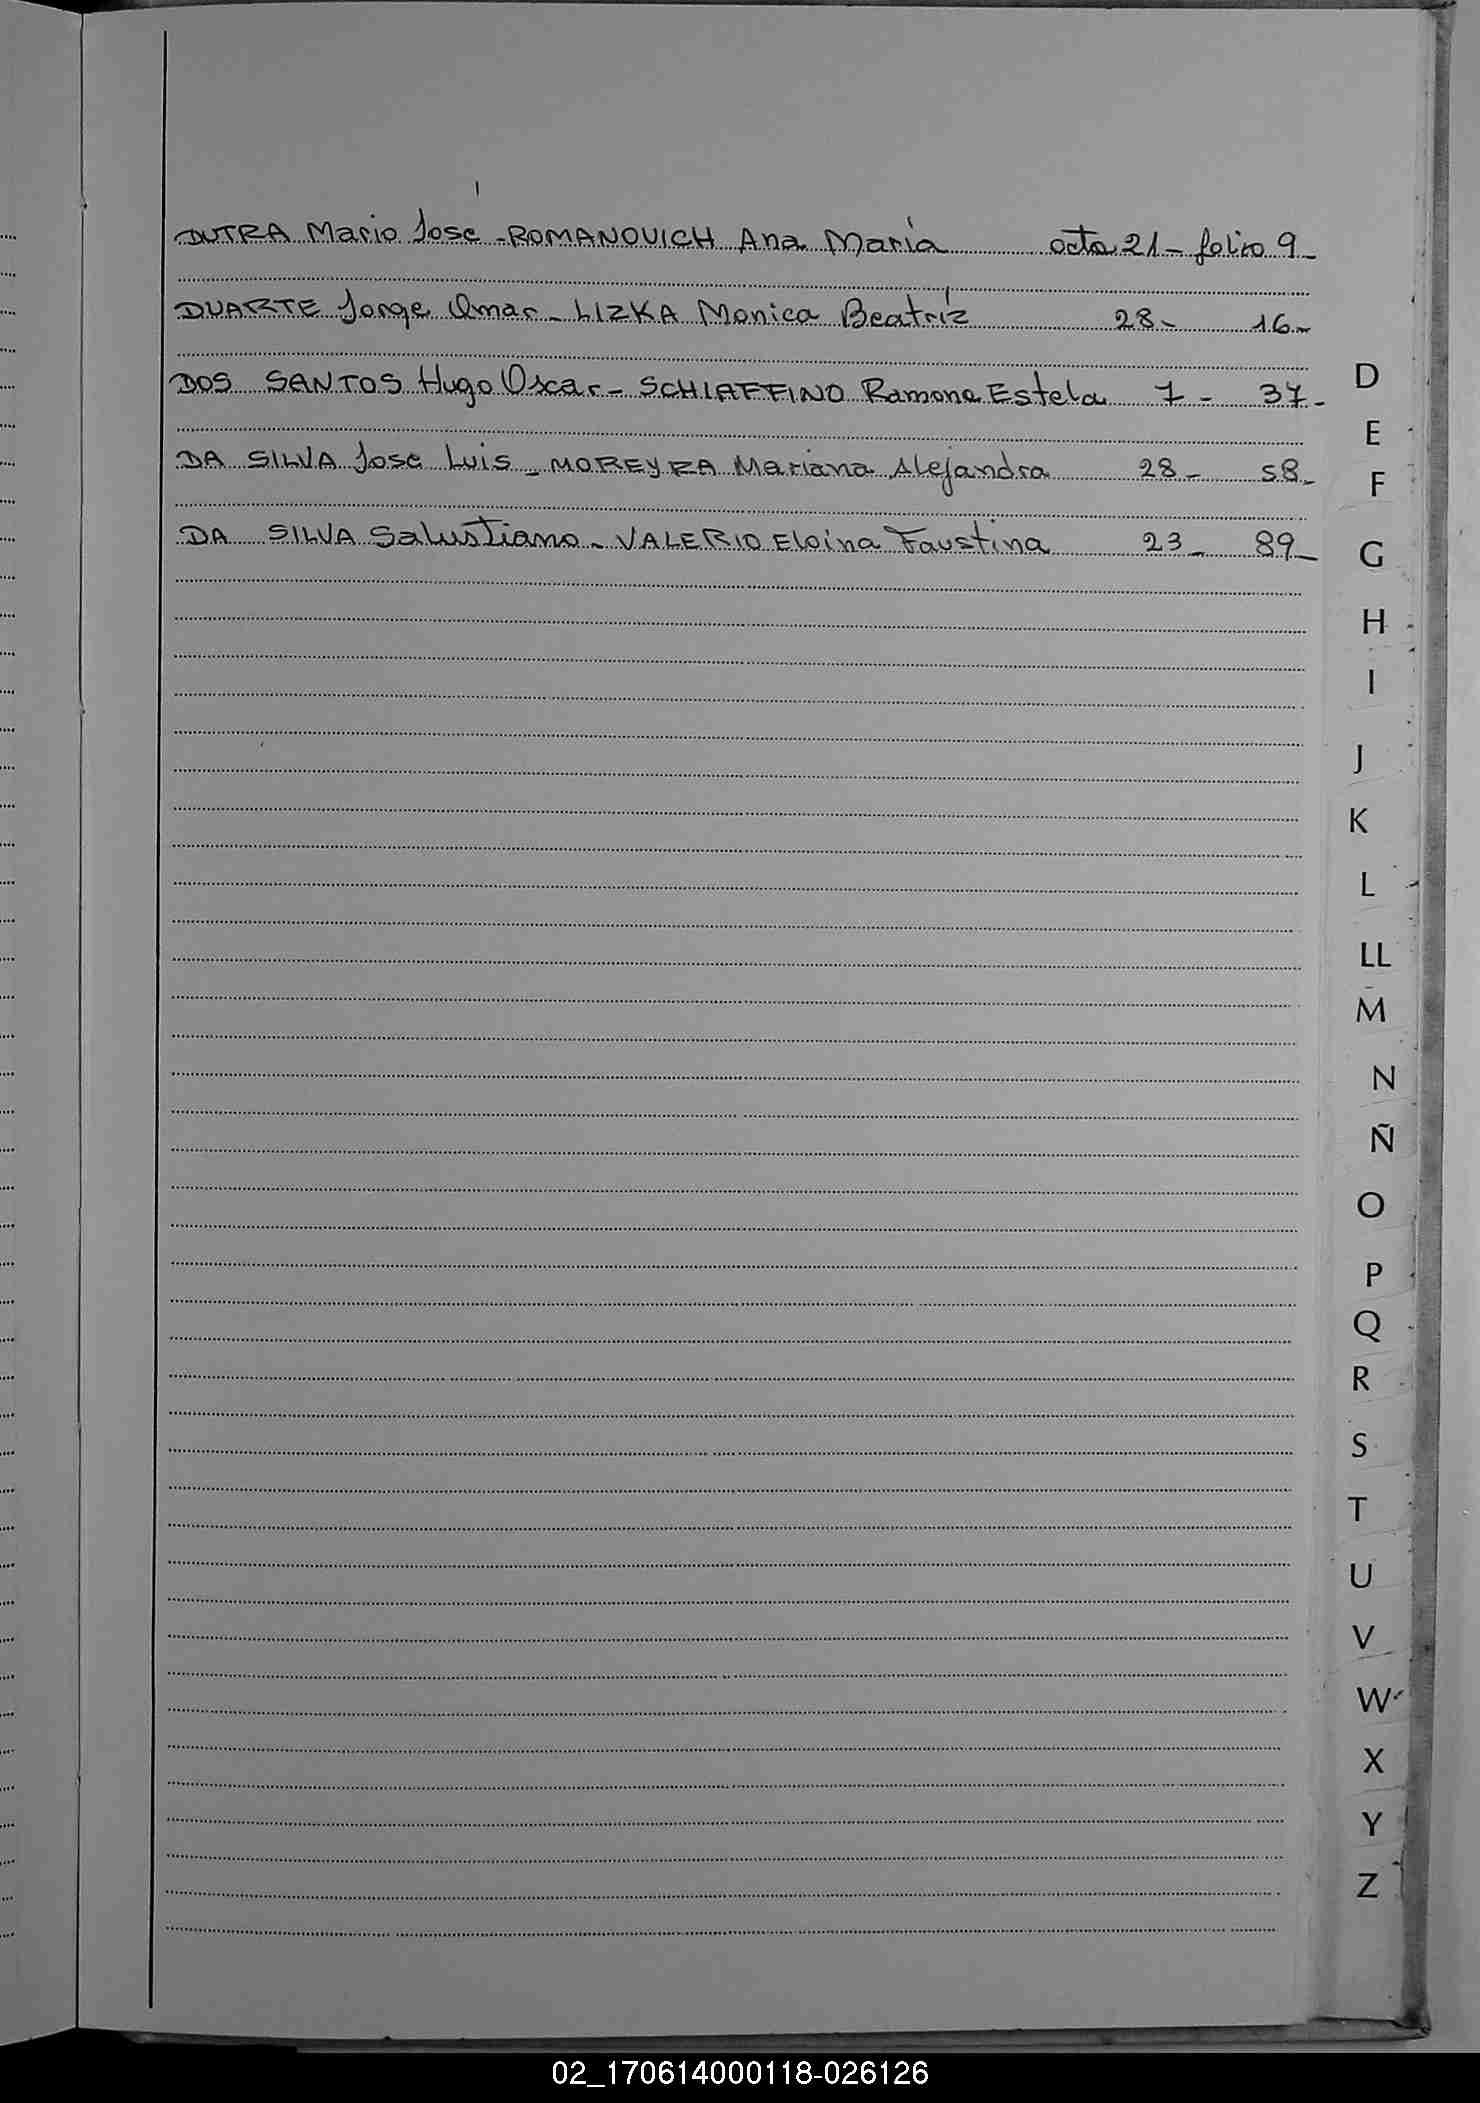 DUTRA Mario José - ROMANOVICH Ana María acta 21 - folio 9 -
DUARTE Jorge Omar - LIZKA Monica Beatríz 28 - 16 -
DOS SANTOS Hugo Oscar - SCHIAFFINO Ramona Estela 7 - 37 -
DA SILVA Jose Luis - MOREYRA Mariana Alejandra 28 - 58 -
DA SILVA Salustiano - VALERIO Eloina Faustina 23 - 89 -
D
E
F
G
H
I
J
K
L
LL
M
N
Ñ
O
P
Q
R
S
T
U
V
W
X
Y
Z
02_170614000118-026126